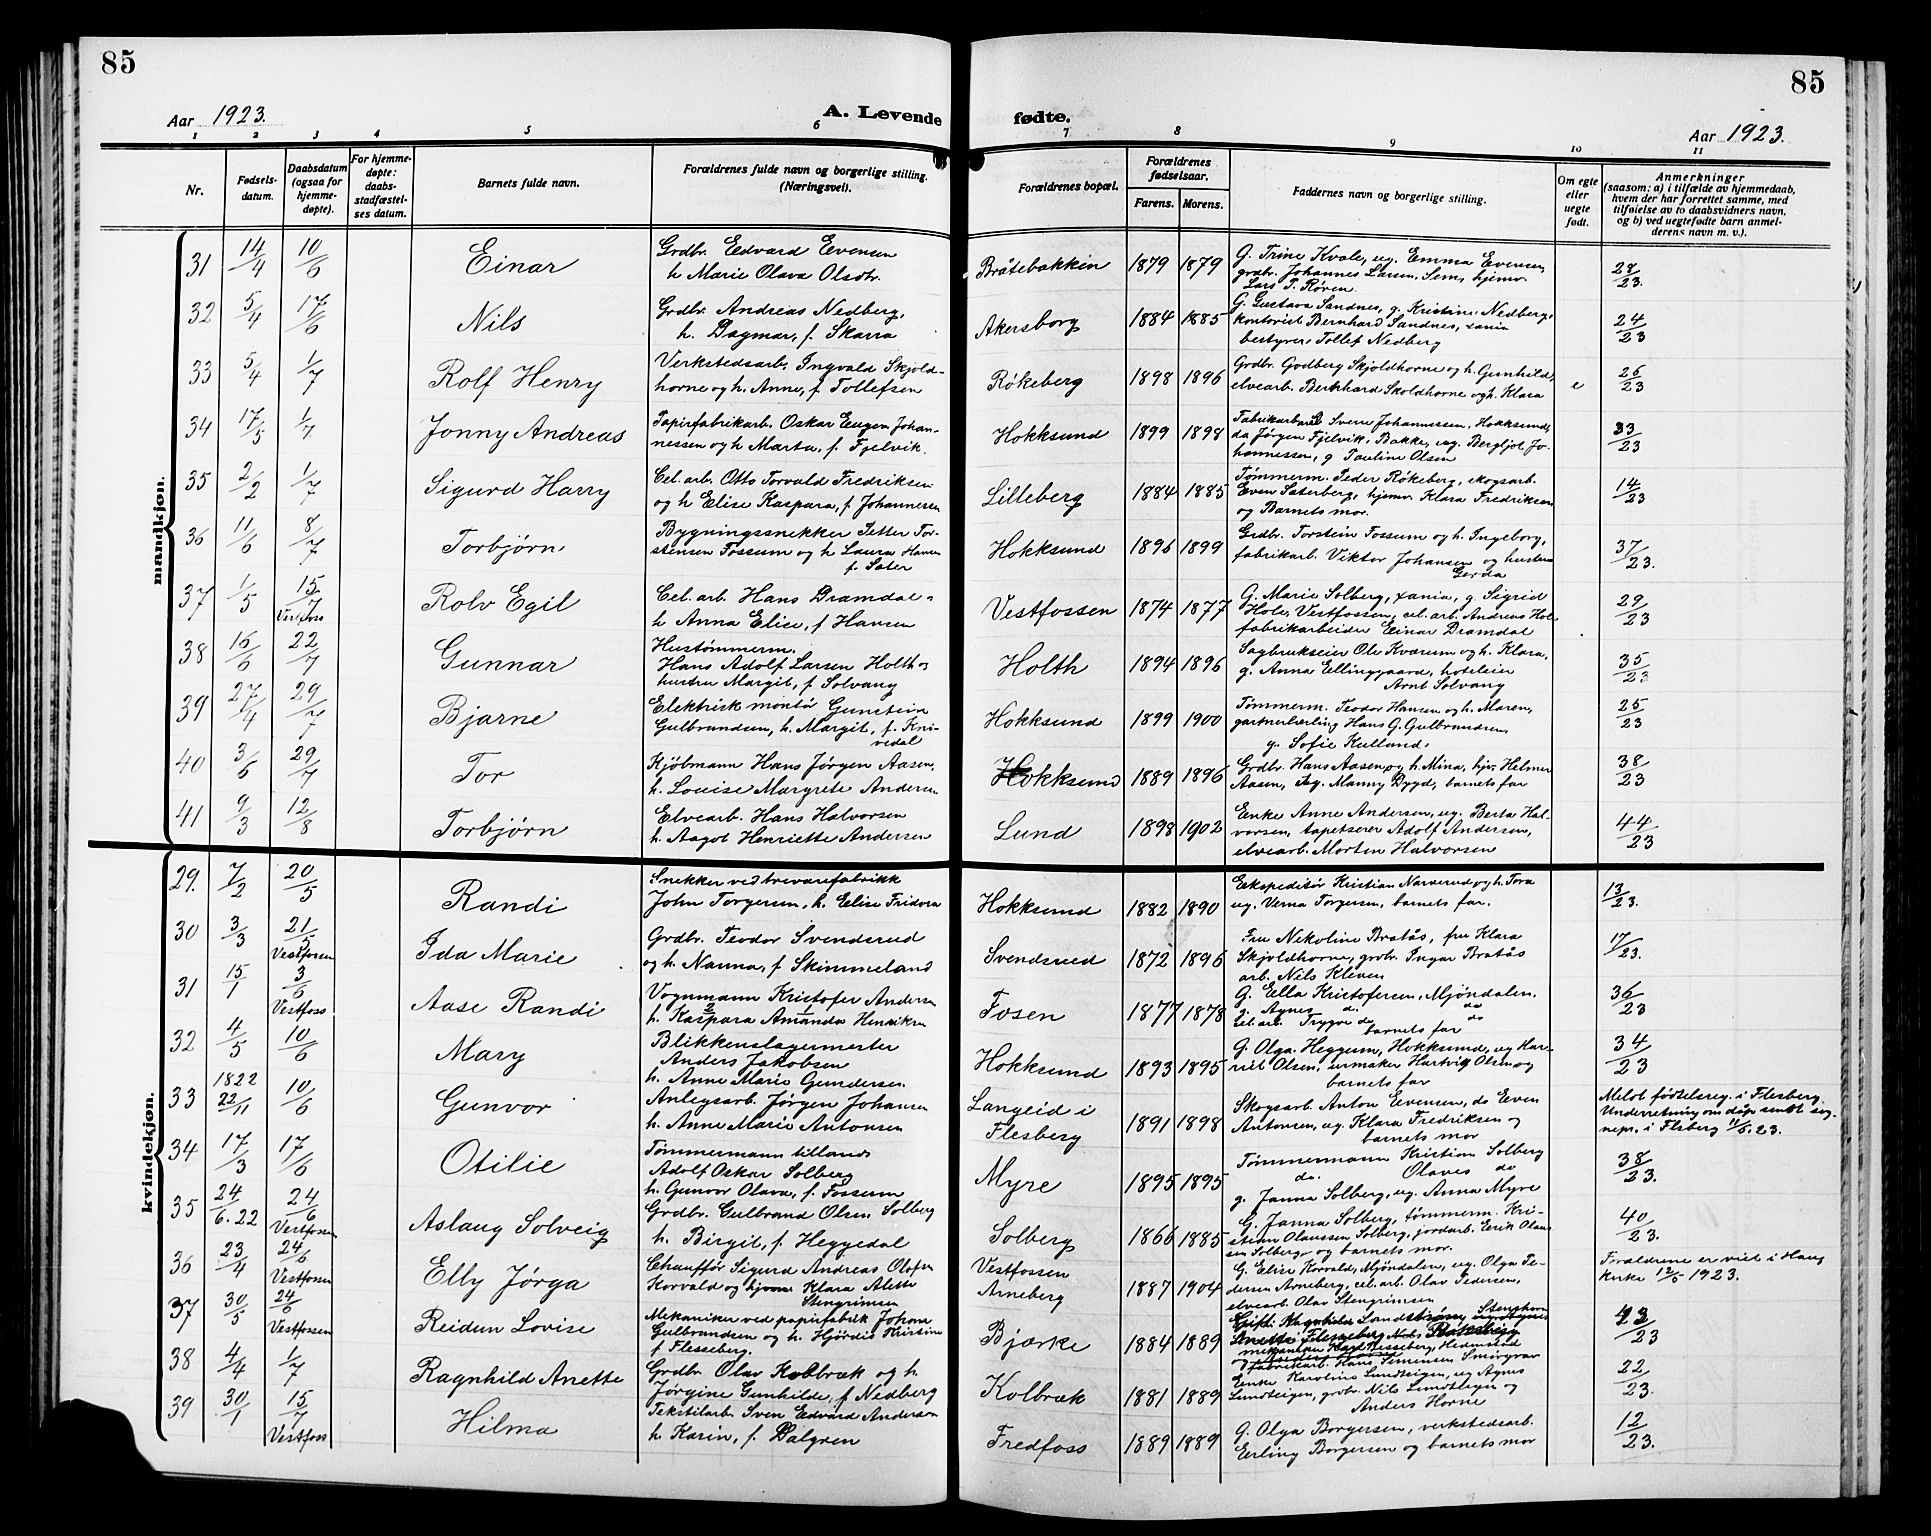 85
85
Aar 1923.
A. Levende fødte.
Aar 1923.
1 2 3 4 5 6 7 8 9 10 11
Nr.
Fødsels-
datum.
Daabsdatum
(ogsaa for
hjemme-
døpte).
For hjemme-
døpte:
daabs-
stadfæstel-
ses datum.
Barnets fulde navn.
Forældrenes fulde navn og borgerlige stilling.
(Næringsvei).
Forældrenes bopæl.
Forældrenes
fødselsaar.
Farens. Morens.
Faddernes navn og borgerlige stilling.
Om egte
eller
uegte
født.
Anmerkninger
(saasom: a) i tilfælde av hjemmedaab,
hvem der har forrettet samme, med
tilføielse av to daabsvidners navn,
og b) ved uegtefødte barn anmel-
derens navn m. v.).
mandkjøn.
31 14/4 10/6 Einar
Grdbr. Edvard Evensen
h Marie Olava Olsdtr.
Bråtebakkin 1879 1879
G. Trine Kvale, ug. Emma Evensen,
grdbr. Johannes Larsen, Sem, hjemv.
Lars T. Røren
28/23.
32 5/4 17/6 Nils
Grdbr. Andreas Nedberg,
h. Dagmar, f. Skarra
Akersborg 1884 1885
G. Gustava Sandnes, g. Kristine Nedberg,
kontorist Bernhard Sandnes, xania
bestyrer Tollef Nedberg
24/23
33 5/4 1/7 Rolf Henry
Verkstedsarb. Ingvald Skjold-
horne og h. Anne, f. Tollefsen
Røkeberg 1898 1896
Grdbr. Godberg Skjoldhorne og h. Gunhild,
elvearb. Bernhard Skoldhorne og h. Klara
e 26/23
34 17/5 1/7. Jonny Andreas
Papirfabrikarb. Oskar Eugen Johan-
nessen og h. Marta, f. Fjelvik.
Hokksund 1899 1898
Fabrikarbeid Sverre Johannessen, Hokksund,
da Jørgen Fjelvik, Bakke, ug. Bergljot Jo-
hannessen, g Pauline Olsen
33/23
35 2/2 1/7 Sigurd Harry
Cel. arb. Otto Torvald Fredriksen
og h Elise Kaspara, f. Johannesen
Lilleberg 1884 1885
Tømmerm. Peder Røkeberg, skogsarb.
Even Saterberg, hjemv. Klara Fredriksen
og Barnets mor.
14/23
36 11/6 8/7 Torbjørn
Bygningssnekker Petter Tor-
stensen Fossum og h Laura Hansen
f. Sater
Hokksund 1896 1899
Grdbr. Torstein Fossum og h. Ingeborg,
fabrikarb. Viktor Johansen og hustru
Gerda
37/23.
37 1/5 15/7 Vestfoss Rolv Egil
Cel. arb. Hans Dramdal
h Anna Elise, f Hansen
Vestfossen 1874 1877
G. Marie Solberg, xania, g. Sigrid
Hole, Vestfossen, cel. arb. Andreas Hol
fabrikarbeider Einar Dramdal
29/23
38 16/6 22/7 Gunnar
Hustømmerm.
Hans Adolf Larsen Holth og
hustru Margit, f. Solvang
Holth 1894 1896
Sagbrukseier Ole Kværum og h. Klara,
g. Anna Ellinggaard, hoteleier
Arnt Solvang
35/23
39 27/4 29/7 Bjarne
Elektrisk montør Gunstein
Gulbrandsen, h. Margit, f. Kni-
vedal
Hokksund 1899 1900
Tømmerm. Teodor Hansen og h. Maren,
gartnerlærling Hans G. Gulbrandsen,
g. Sofie Kulland.
25/23
40 3/6 29/7 Tor
Kjøbmann Hans Jørgen Aasen,
h. Louise Margrete Andersen
Hokksund 1889 1896
Grdbr. Hans Aasen, og h. Mina, hjv. Helmer
Aasen, ug. Manny Bygd, barnets far
38/23
41 9/3 12/8 Torbjørn
Elvearb. Hans Halvorsen
h. Aagot Henriette Andersen
Lund 1898 1902
Enke Anne Andersen, ug. Berta Hal-
vorsen, tapetserer Adolf Andersen,
elvearb. Morten Halvorsen
44/23
kvindekjøn.
29. 7/2 20/5 Randi
Snekker ved trevarefabrikk
John Torgersen, h. Elise Fridora
Hokksund 1882 1890
Ekspeditør Kristian Narverud og h. Tora
ug. Verna Torgersen, barnets far.
13/23.
30 3/3 21/5 Vestfossen Ida Marie
Grdbr. Teodor Svendsrud
og h. Nanna, f. Skimmeland
Svendsrud 1872 1896
Fru Nikoline Bratås, fru Klara
Skjoldhorne, grdbr. Ingar Bratås
arb. Nils Kleven
17/23.
31 15/1 3/6 Vestfoss Aase Randi
Vognmann Kristofer Andersen
h. Kaspara Amanda Henriksen
Fosen 1877 1878
G. Ella Kristofersen, Mjøndalen.
g. Agnes do. do
cel. arb. Trygve do do
barnets far
36/23
32 4/5 10/6 Mary
Blikkenslagermester
Anders Jakobsen
h. Anne Marie Gundersen
Hokksund 1893 1895
G. Olga Heggum, Hokksund, ug Har-
riet Olsen, urmaker Hartvig Olsen og
barnets far
34/23
33 1822 22/11 10/6 Gunvor
Anlegsarb. Jørgen Johansen
h. Anne Marie Antonsen
Langeid i
Flesberg 1891 1898
Skogsarb. Anton Evensen, do Even
Antonsen, ug. Klara Fredriksen og
barnets mor
Meldt fødselsreg. i Flesberg.
Underretning om dåp sendt sog-
nepr. i Flsberg 11/6. 23.
34 17/3 17/6 Otilie
Tømmermann tillands
Adolf Oskar Solberg
h. Gunvor Olava, f. Fossum
Myre 1895 1895
Tømmermann Kristian Solberg
do. Olaves do
g. Janna Solberg, ug. Anna Myre
38/23.
35 24/6.22 24/6 Vestfossen Aslaug Solveig
Grdbr. Gulbrand Olsen Solberg
h. Birgit, f. Heggedal
Solberg 1866 1885
G. Janna Solberg, tømmerm. Kri-
stian Olaussen Solberg, jordarb. Erik Olaus-
sen Solberg og barnets mor.
40/23.
36 23/4 24/6 Vestfossen Elly Jørga
Chauffør Sigurd Andreas Olsen
Korvald og hjemv. Klara Alette
Stengrimsen
Vestfossen
Arneberg 1887 1904
G. Elise Korvald, Mjøndalen, ug. Olga Pe-
dersen Arneberg, cel. arb. Olav Pedersen,
elvearb. Olav Stengrimsen
Foraldrene er viet i Haug
kirke 12/5 1923.
37 30/5 24/6 Vestfossen Reidun Lovise
Mekaniker ved papirfabrik Johan
Gulbrandsen og h. Hjørdis Kristine
f. Flesseberg.
Bjærke 1884 1889
43/23
38 4/4 1/7 Ragnhild Anette
Grdbr. Olav Kolbræk og h.
Jørgine Gunhilde, f Nedberg
Kolbræk 1881 1889
Enke Karoline Lundteigen, ug Agnes
Lundteigen, grdbr. Nils Lundteigen og
Anders Horne
22/23.
39 30/1 15/7 Vestfoss Hilma
Tekstilarb. Sven Edvard Andersson
h Karin, f. Dalgren
Fredfoss 1889 1889
G. Olga Borgersen, verkstedsarb.
Erling Borgersen og barnets mor
12/23.